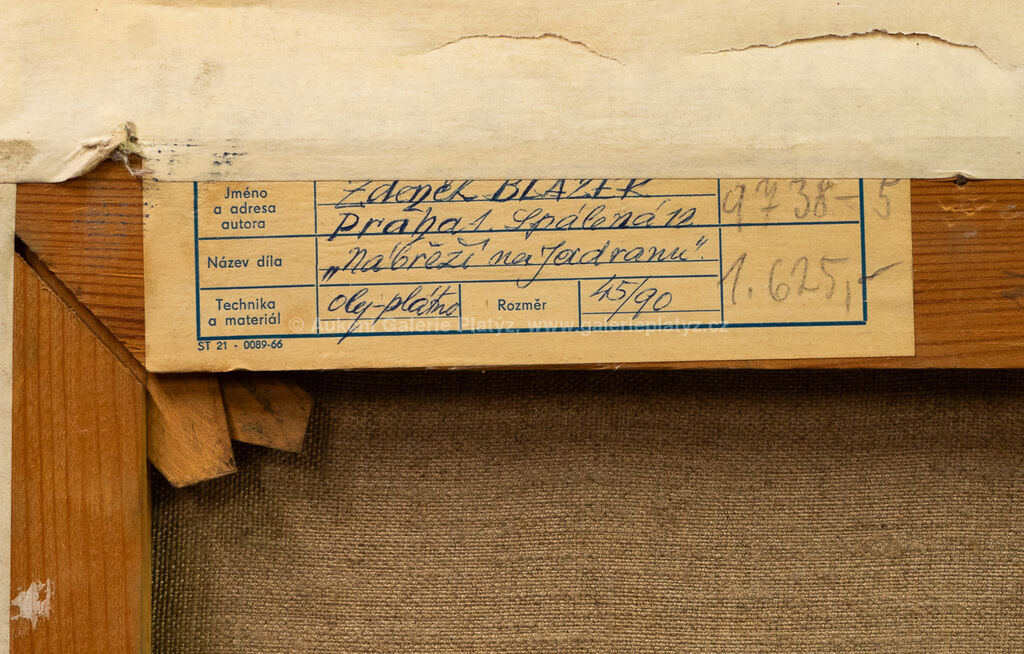 Jméno
a adresa
autora
Zdeněk BLAŽEK
Praha 1. Spálená 12
9738-5
Název díla
„Nábřeží na Jadranu".
1.625,-
Technika
a materiál
olej-plátno
Rozměr
45/90
ST 21 - 0089-66
© Aukční Galerie Platýz, www.galerieplatyz.cz